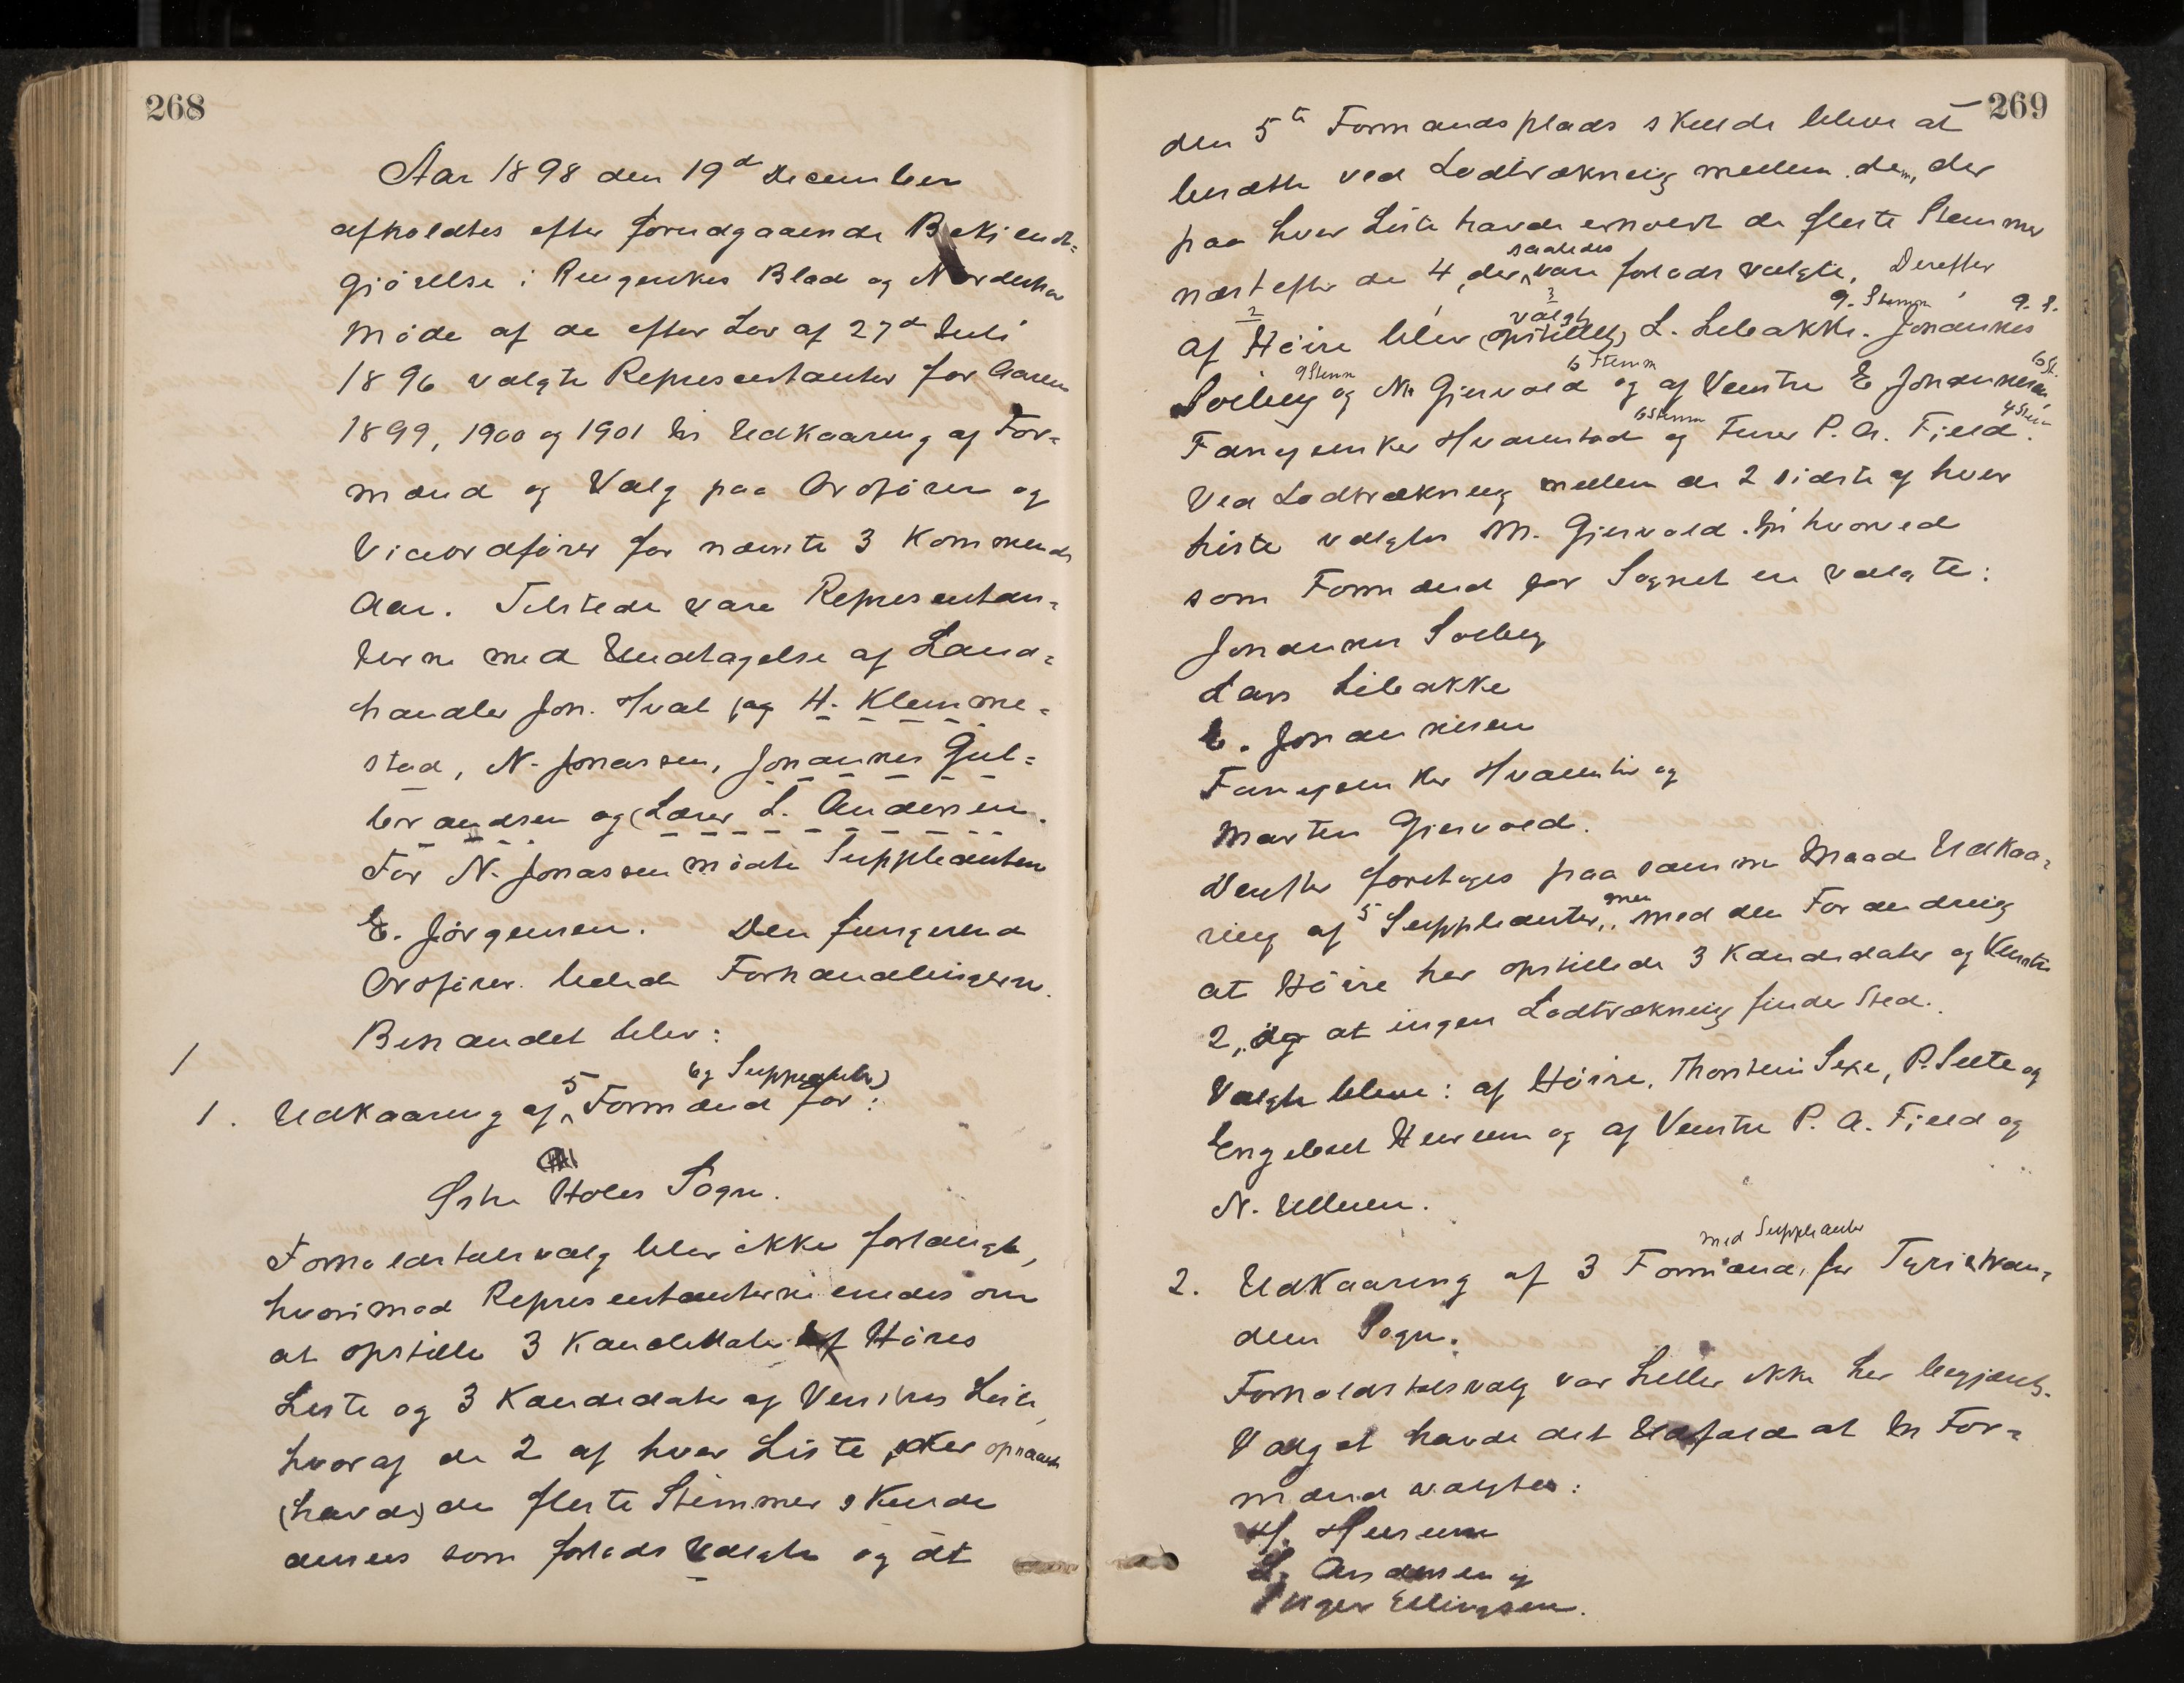 268
Aar 1898 den 19de December
afholdtes efter forudgaaende Bekjendt=
gjörelse i Ringerikes Blad og Norderhov
Möde af de efter Lov af 27de Juli
1896 valgte Representanter for Aarene
1899, 1900 og 1901 til Udkaaring af For=
mænd og Valg paa Ordförer og
Viceordförer for næste 3 kommende
Aar. Tilstede vare Representan=
terne med Undtagelse af Land=
handler Joh. Hval og H. Klemme=
stad, N. Jonassen, Johannes Gul=
brandsen og (Lærer L. Andersen.
For N. Jonassen mödte Suppleanten
E. Jörgensen. Den fungerende
Ordförer ledede Forhandlingerne.
Behandlet blev:
1
og Suppleanter)
1. Udkaaring af 5 Formænd for:
Hole Sogn.
Forholdstalsvalg blev ikke forlangt,
hvorimod Representanterne enedes om
at opstille 3 Kandidater af Höires
Liste og 3 Kandidater af Venstres Liste,
hvoraf de 2 af hver Liste, der opnaaede
(havde) de fleste Stemmer skulde
ansees som forlods valgte og at
269
den 5te Formandsplads skulde blive at
besætte ved Lodtrækning mellem dem, der
paa hver Liste havde erholdt de fleste Stemmer
saaledes
næst efter de 4, der vare forlods valgte. Derefter
2 3 valgt 9. Stemmer 9. S.
af Höire blev (opstillet) L. Libakke. Johannes
9 Stemm 6 Stemm 6 St.
Solberg og M. Gjesvold og af Venstre E Johannesen,
6 Stemm 4 Stem
Hvamstad og P. A. Fjeld.
Ved Lodtrækning mellem de 2 sidste af hver
Liste valgtes M. Gjesvold. hvorved
som Formænd for Sognet er valgte:
Johannes Solberg
Lars Libakke
E. Johannesen
og
Marten Gjesvold.
Derefter foretoges paa samme Maade Udkaa=
men
ring af 5 Suppleanter, med den Forandring
at Höire her opstillede 3 Kandidater og Venstre
2, og at ingen Lodtrækning finder Sted.
Valgte bleve: af Höire, Thorstein Sexe, P. Seete og
Engebret Hurum og af Venstre P. A. Fjeld og
N. Ulleren.
med Suppleanter
2. Udkaaring af 3 Formænd, for Tyristran=
dens Sogn.
Forholdstalsvalg var heller ikke her begjært.
Valget havde det Udfald at til For=
mænd valgtes:
H. Hurum
L. Andersen og
Ellingsen.